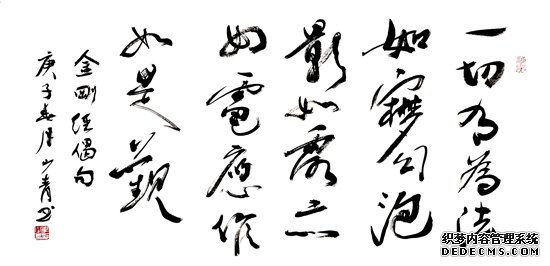 一切有為法
如夢幻泡
影如露亦
如電應作
如是觀
金剛经偈句
庚子春月青书
织梦内容管理系统
DEDECMS.COM